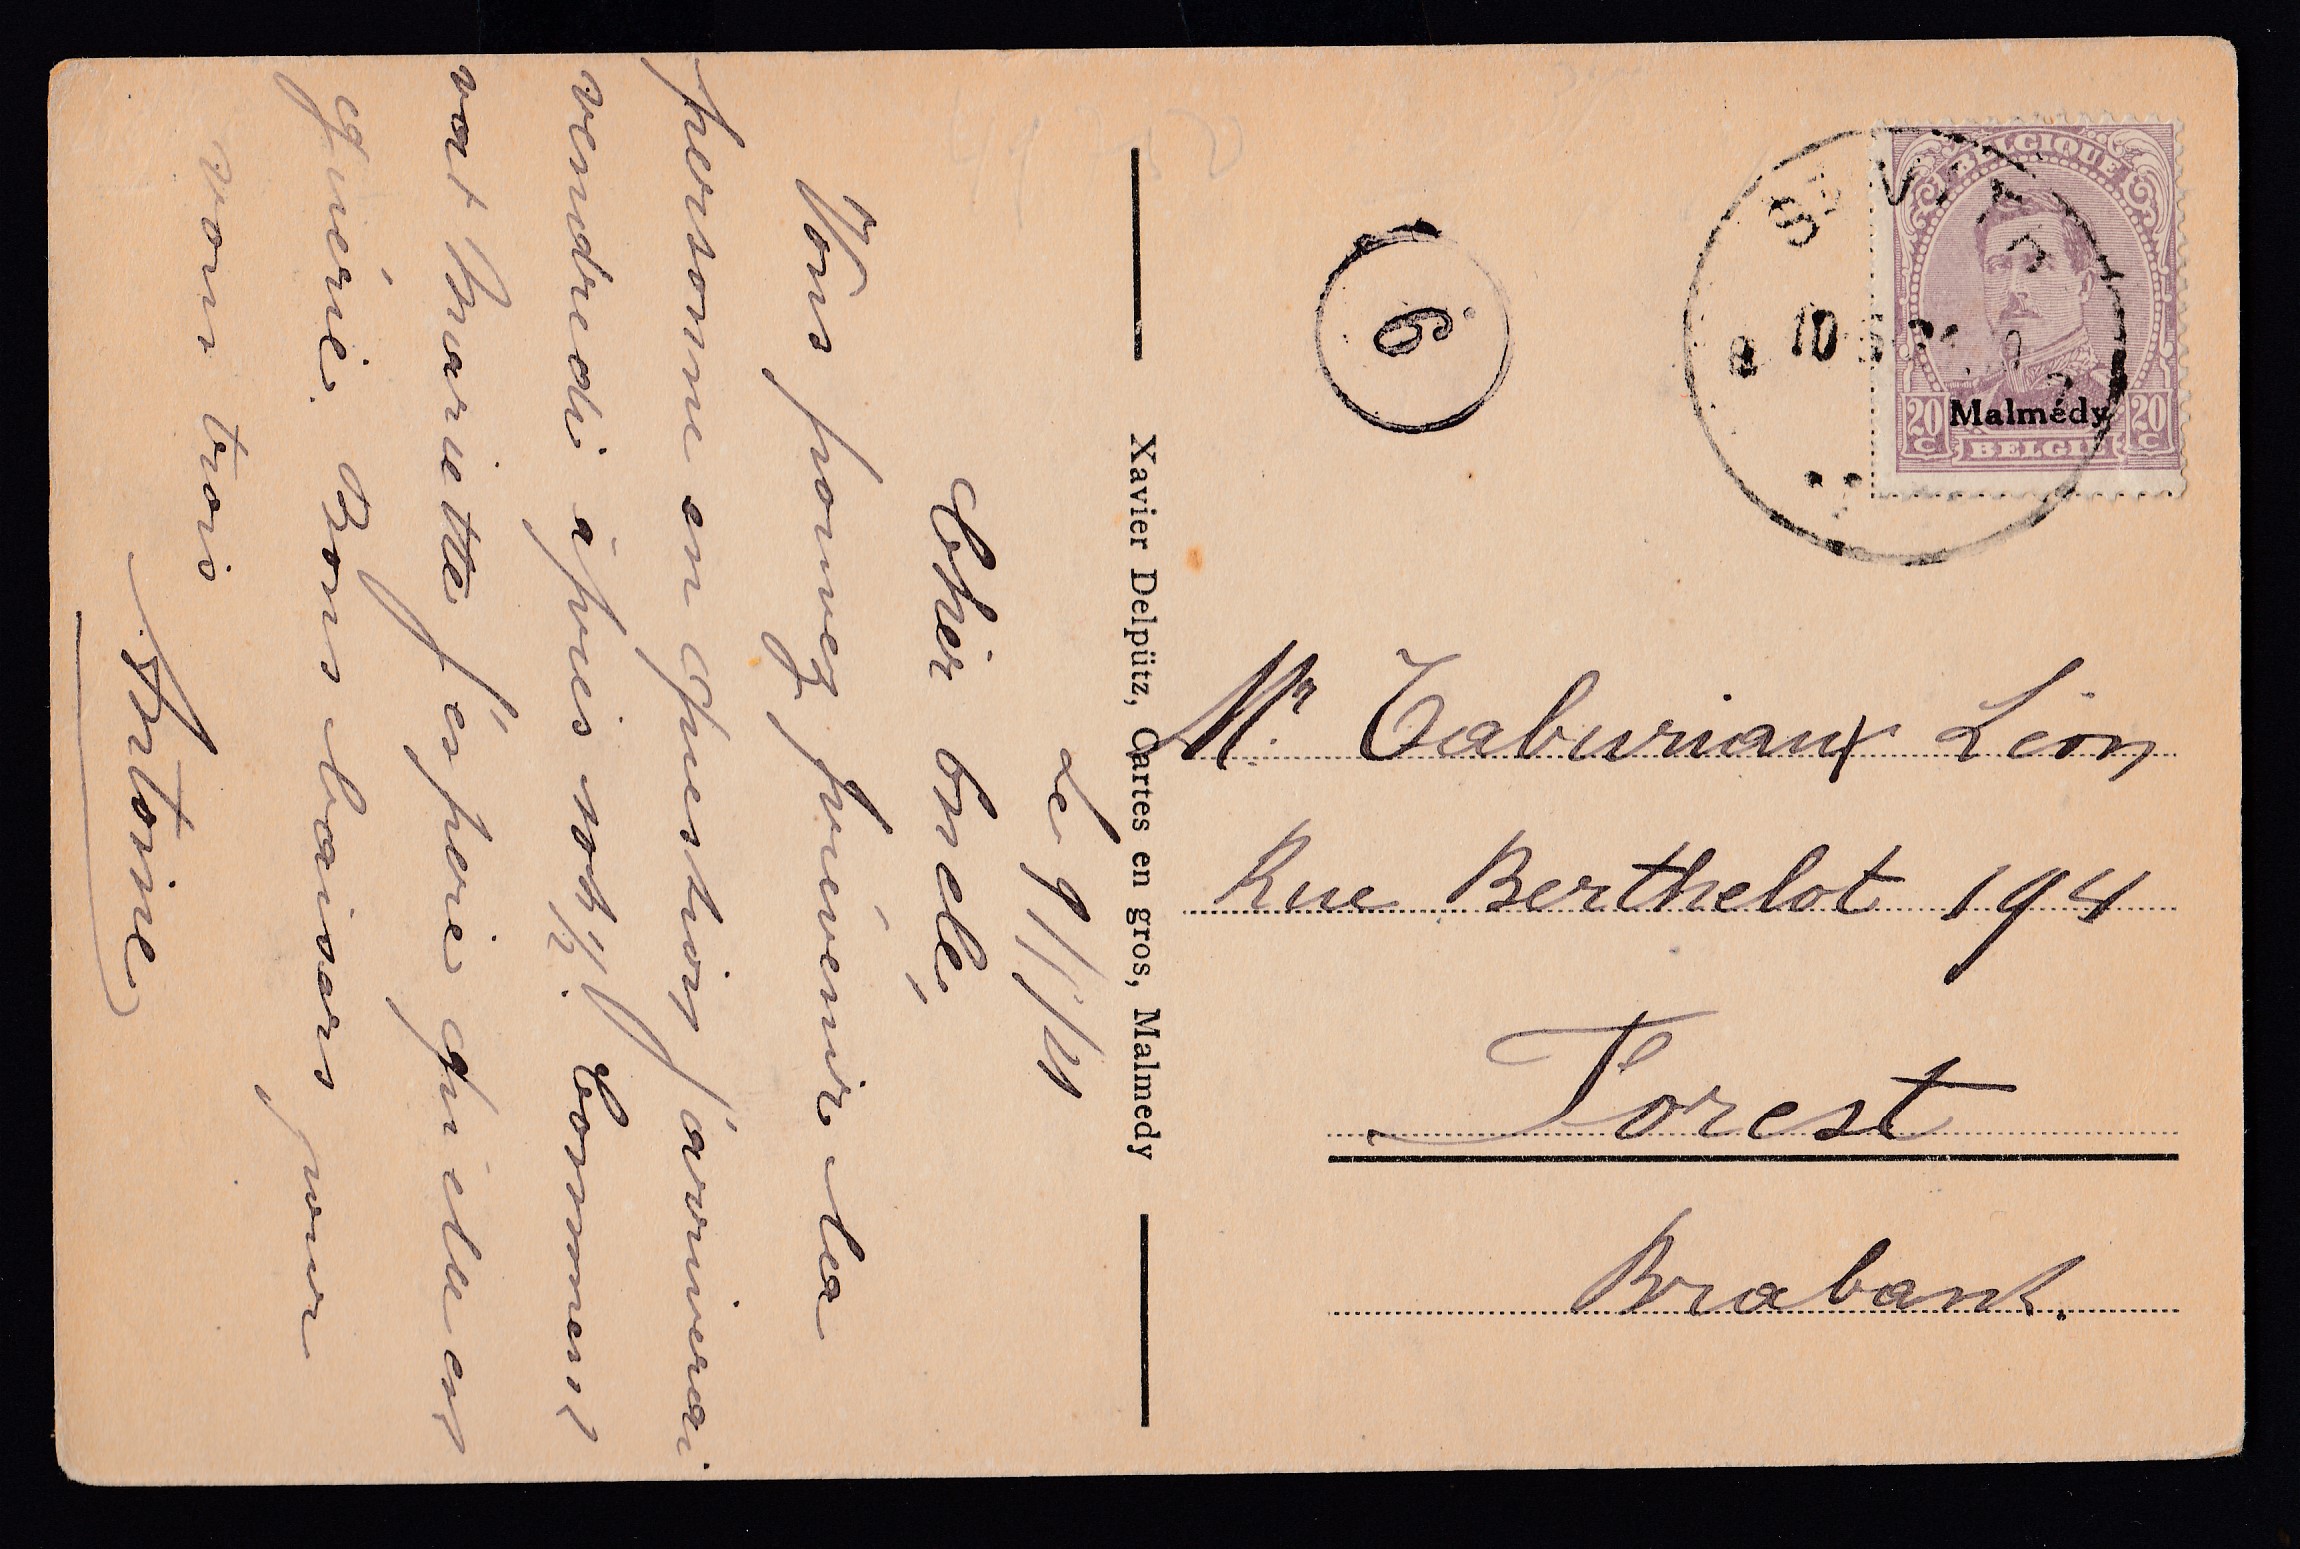 Le 9/1/21
Cher Oncle,
Vous pouvez prévenir la
personne en question j'arriverai
vendredi après 10h½. Comment
vat Mariette j'espère qu'elle est
guérie. Bons baisers pour
vous trois
Antoine
Xavier Delpütz, Cartes en gros, Malmedy
6
BELGIQUE
20 C
Malmédy
20 C
BELGIË
10
Mr Taburiaux Léon
Rue Berthelot 194
Forest
Brabant.